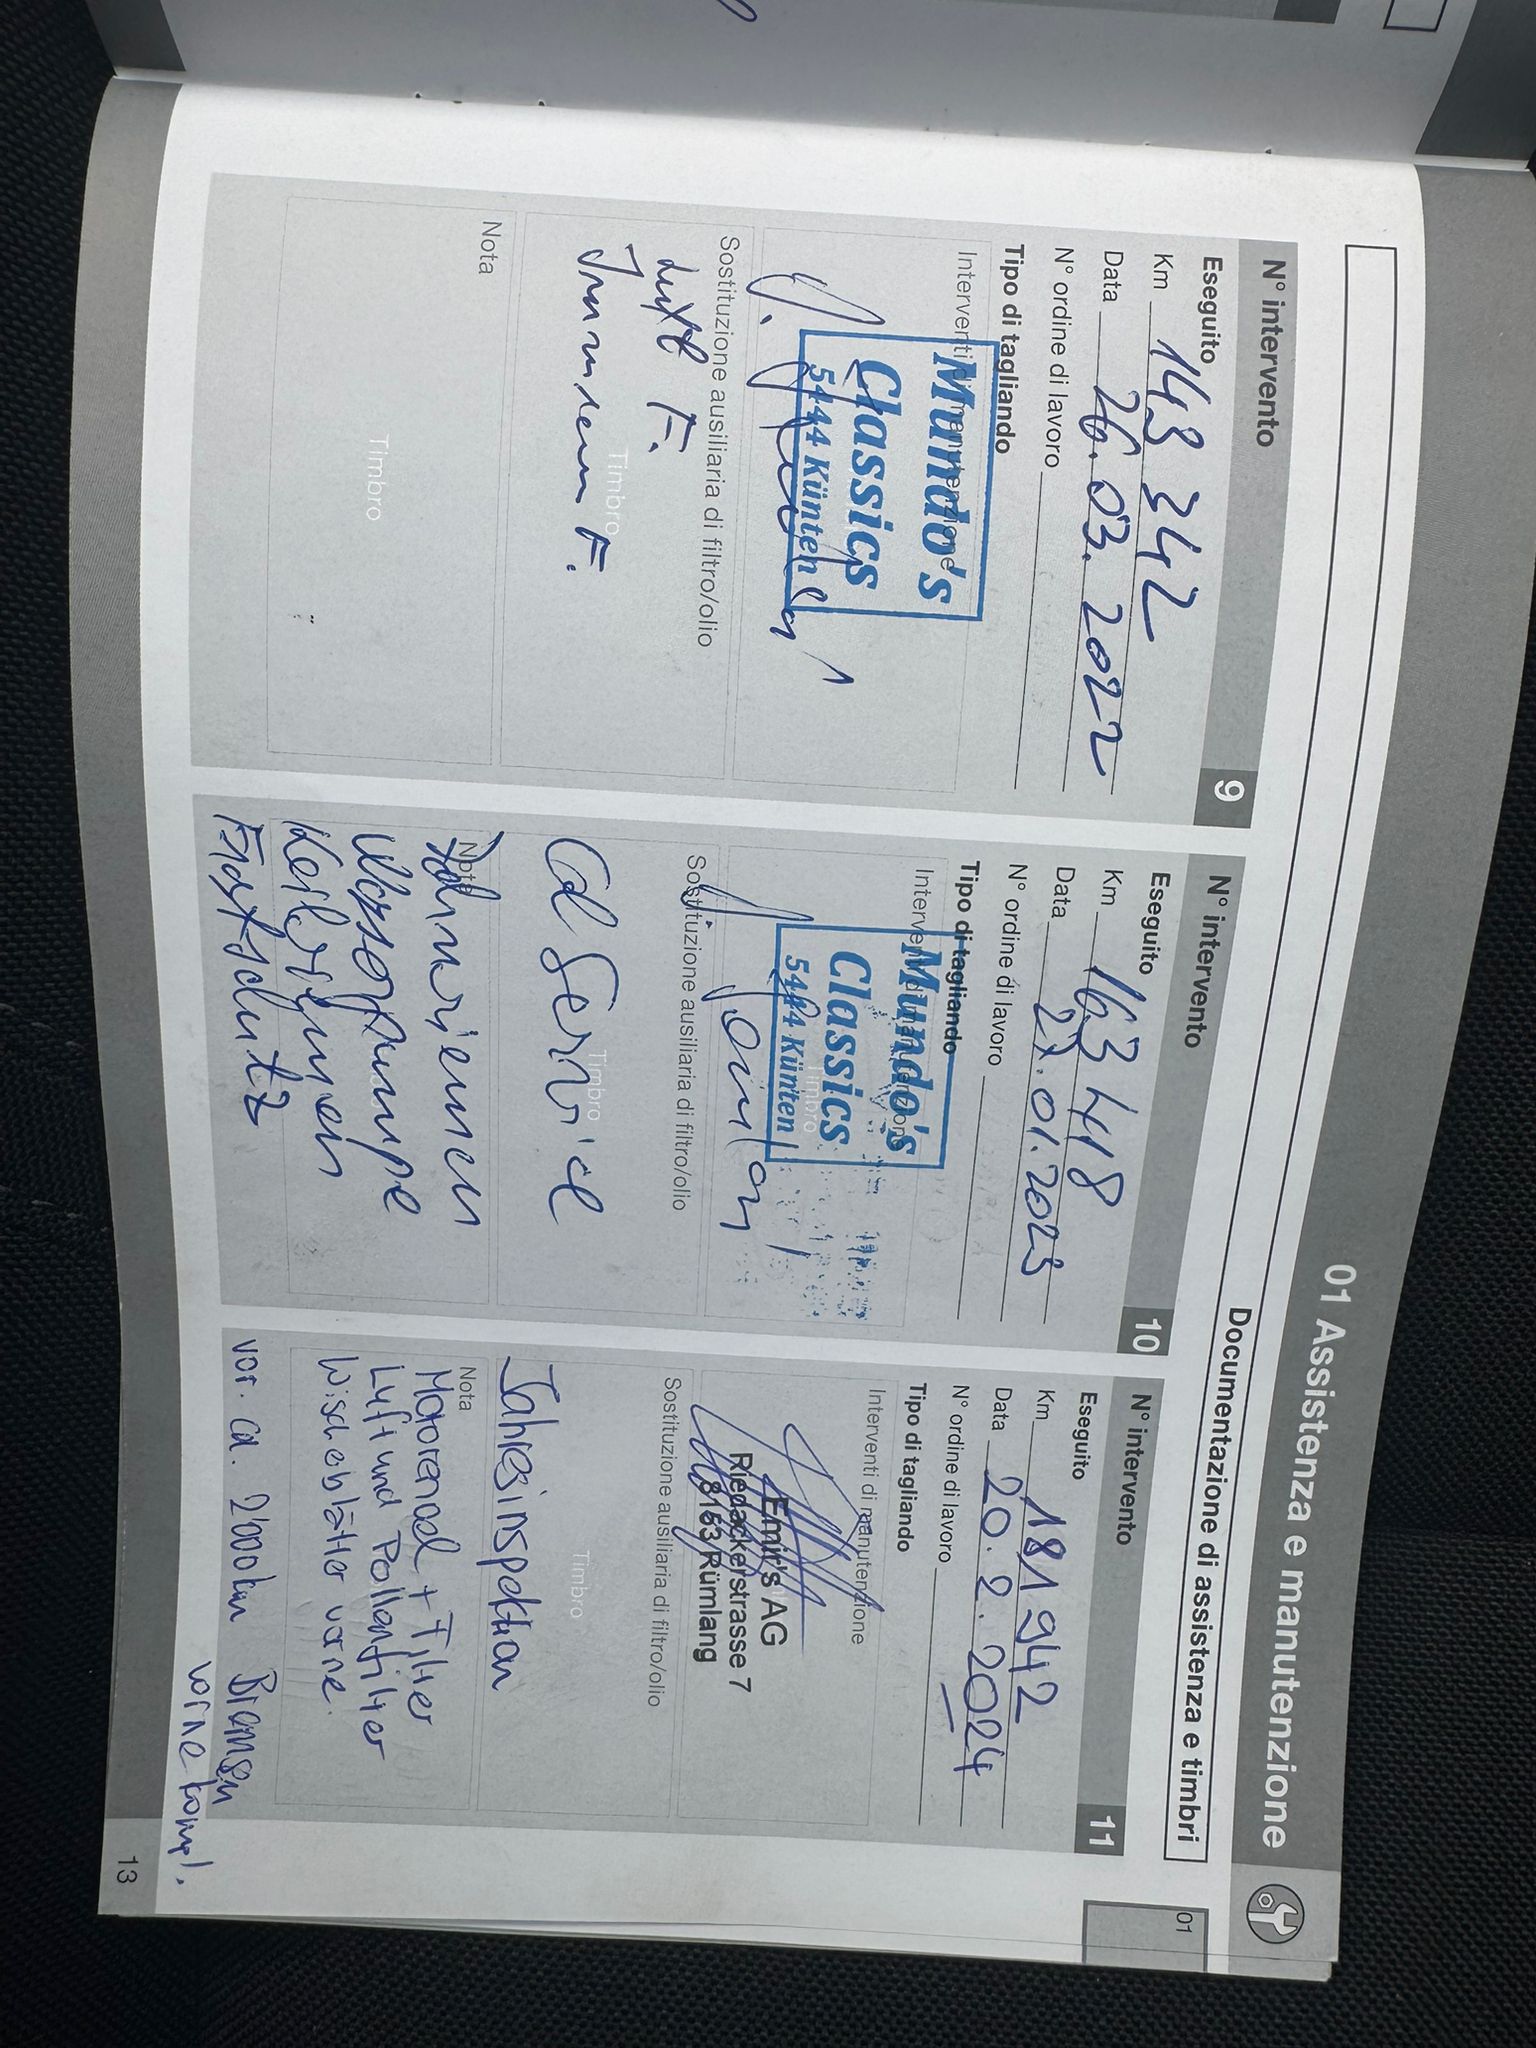 01 Assistenza e manutenzione
Documentazione di assistenza e timbri
01
N° intervento 9
Eseguito
Km 143 342
Data 26.03.2022
N° ordine di lavoro
Tipo di tagliando
Interventi di manutenzione
Mundo's
Classics
5444 Künten
Sostituzione ausiliaria di filtro/olio
Luft F.
Timbro
Innenraum F.
Nota
Timbro
N° intervento 10
Eseguito
Km 163 448
Data 27.01.2023
N° ordine di lavoro
Tipo di tagliando
Interventi di manutenzione
Mundo's
Classics
Timbro
5444 Künten
Sostituzione ausiliaria di filtro/olio
Timbro
Öl Service
Nota
Zahnriemen
Wasserpumpe
Keilriemen
Frostschutz
N° intervento 11
Eseguito
Km 181 942
Data 20.2.2024
N° ordine di lavoro
Tipo di tagliando
Interventi di manutenzione
Emir's AG
Riedackerstrasse 7
8153 Rümlang
Sostituzione ausiliaria di filtro/olio
Timbro
Jahresinspektion
Nota
Motorenoel + Filter
Luft und Pollenfilter
Wischerblätter vorne
vor. ca. 2'000km Bremsen
vorne kompl.
13